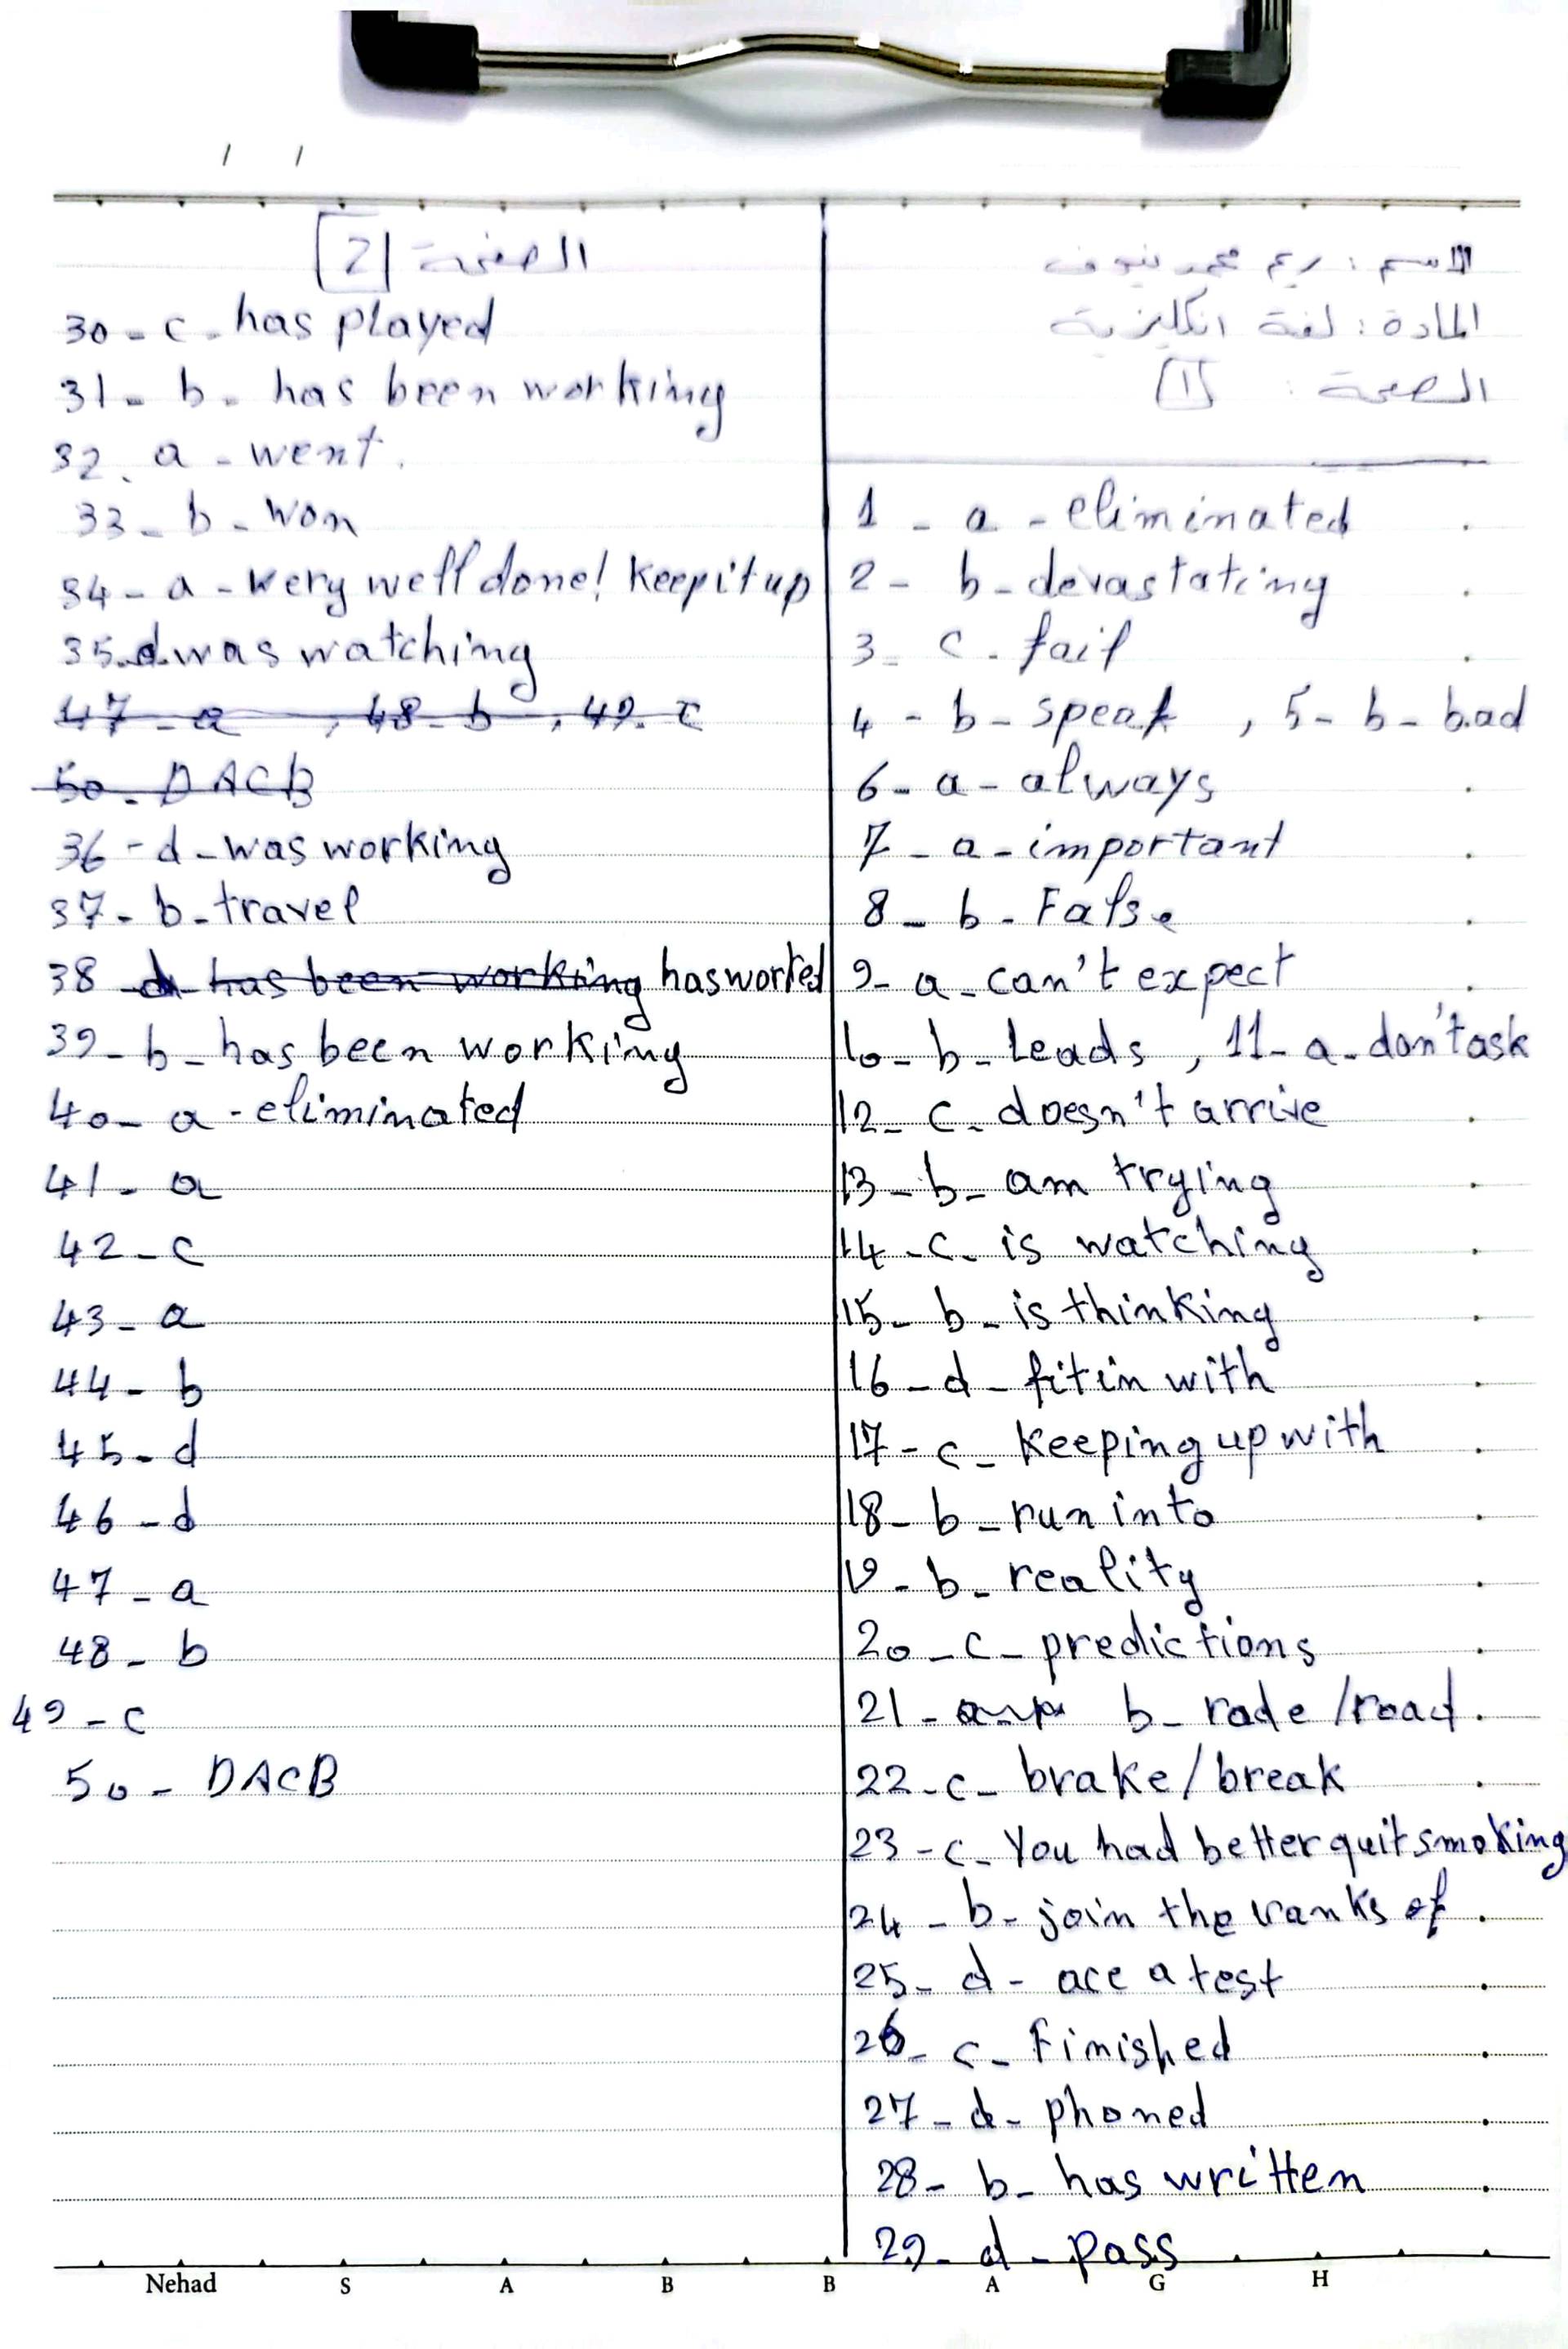 الاسم : ريم محمد نيوف
المادة : لغة انكليزية
الصفحة : [1]
1 - a - eliminated .
2 - b - devastating .
3 - c - fail .
4 - b - speak , 5 - b - bad
6 - a - always .
7 - a - important .
8 - b - False .
9 - a - can't expect .
10 - b - Leads , 11 - a - don't ask
12 - c - doesn't arrive .
13 - b - am trying .
14 - c - is watching .
15 - b - is thinking .
16 - d - fit in with .
17 - c - keeping up with .
18 - b - run into .
19 - b - reality .
20 - c - predictions .
21 - b - rode / road .
22 - c - brake / break .
23 - c - You had better quit smoking
24 - b - join the ranks of .
25 - d - ace a test .
26 - c - Finished .
27 - d - phoned .
28 - b - has written .
29 - d - pass
الصفحة [2]
30 - c - has played
31 - b - has been working
32 - a - went .
33 - b - won
34 - a - very well done! keep it up
35 - d - was watching
47 - a , 48 - b , 49 - c
50 - DACB
36 - d - was working
37 - b - travel
38 d has been working has worked
39 - b - has been working
40 - a - eliminated
41 - a
42 - c
43 - a
44 - b
45 - d
46 - d
47 - a
48 - b
49 - c
50 - DACB
Nehad S A B B A G H